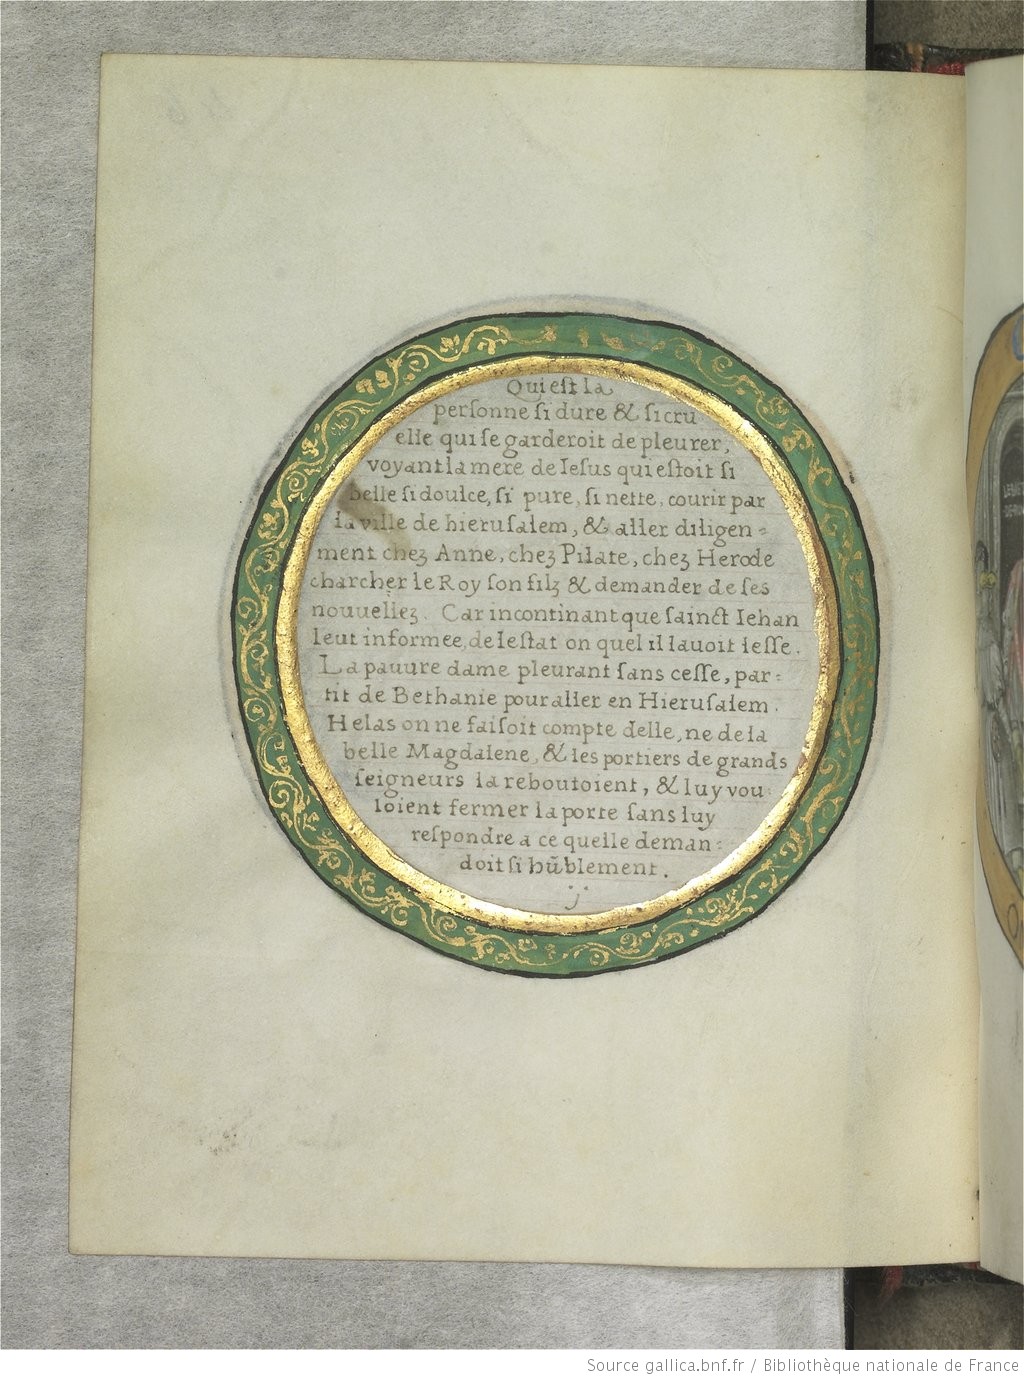 Qui eſt la
perſonne ſi dure & ſi cru
elle qui ſe garderoit de pleurer,
voyant la mere de Ieſus qui eſtoit ſi
belle ſi doulce, ſi pure, ſi nette, courir par
la ville de hieruſalem, & aller diligen=
ment chez Anne, chez Pilate, chez Herode
charcher le Roy ſon filz & demander de ſes
nouuellez. Car incontinant que ſainct Iehan
leut informee, de leſtat on quel il lauoit leſſe.
La pauure dame pleurant ſans ceſſe, par=
tit de Bethanie pour aller en Hieruſalem.
Helas on ne faiſoit compte delle, ne de la
belle Magdalene, & les portiers de grands
ſeigneurs la reboutoient, & luy vou=
loient fermer la porte ſans luy
reſpondre a ce quelle deman=
doit ſi hūblement.
Source gallica.bnf.fr / Bibliothèque nationale de France